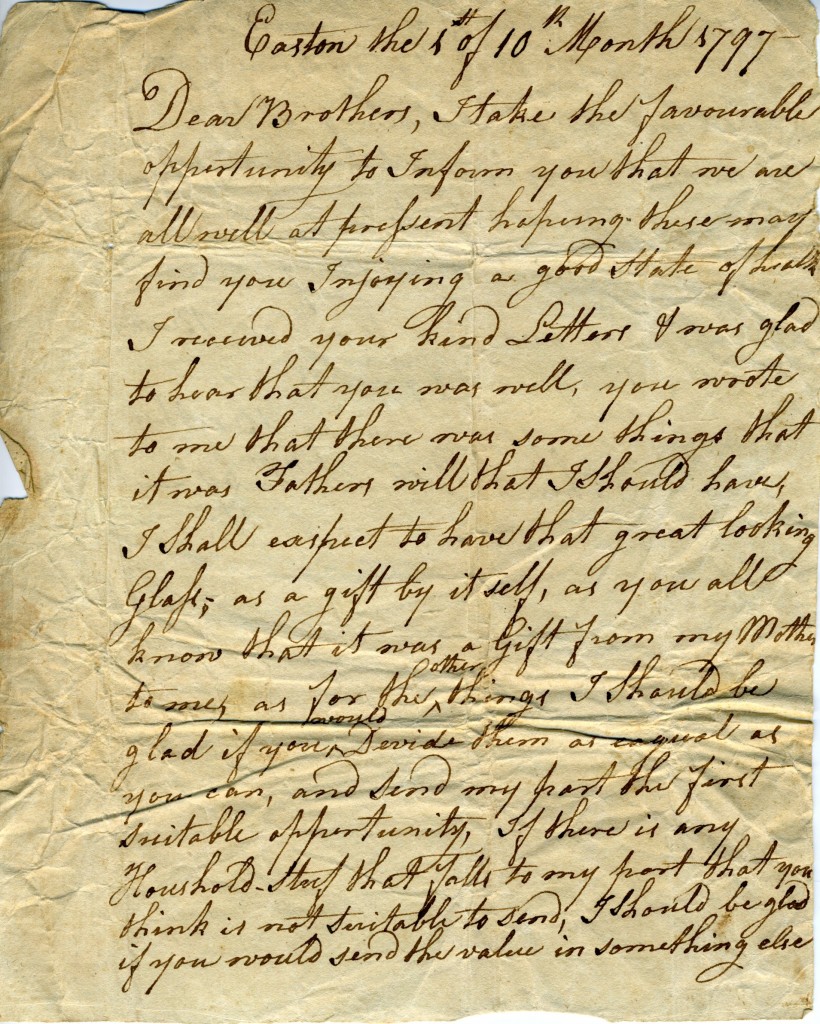 Easton the 5th of 10th Month 1797
Dear Brothers, I take the favourable
oppertunity to Inform you that we are
all well at pressent hopeing these may
find you Injoying a good State of health
I received your kind Letters & was glad
to hear that you was well, you wrote
to me that there was some things that
it was Fathers will that I Should have,
I Shall exspect to have that great looking
Glass, as a gift by it self, as you all
know that it was a Gift from my Mother
to me, as for the ^other things I Should be
glad if you ^would Devide them as eaqual as
you can, and send my part the first
suitable oppertunity, If there is any
Houshold-Stuf that falls to my part that you
think is not suitable to send, I Should be glad
if you would send the value in something else